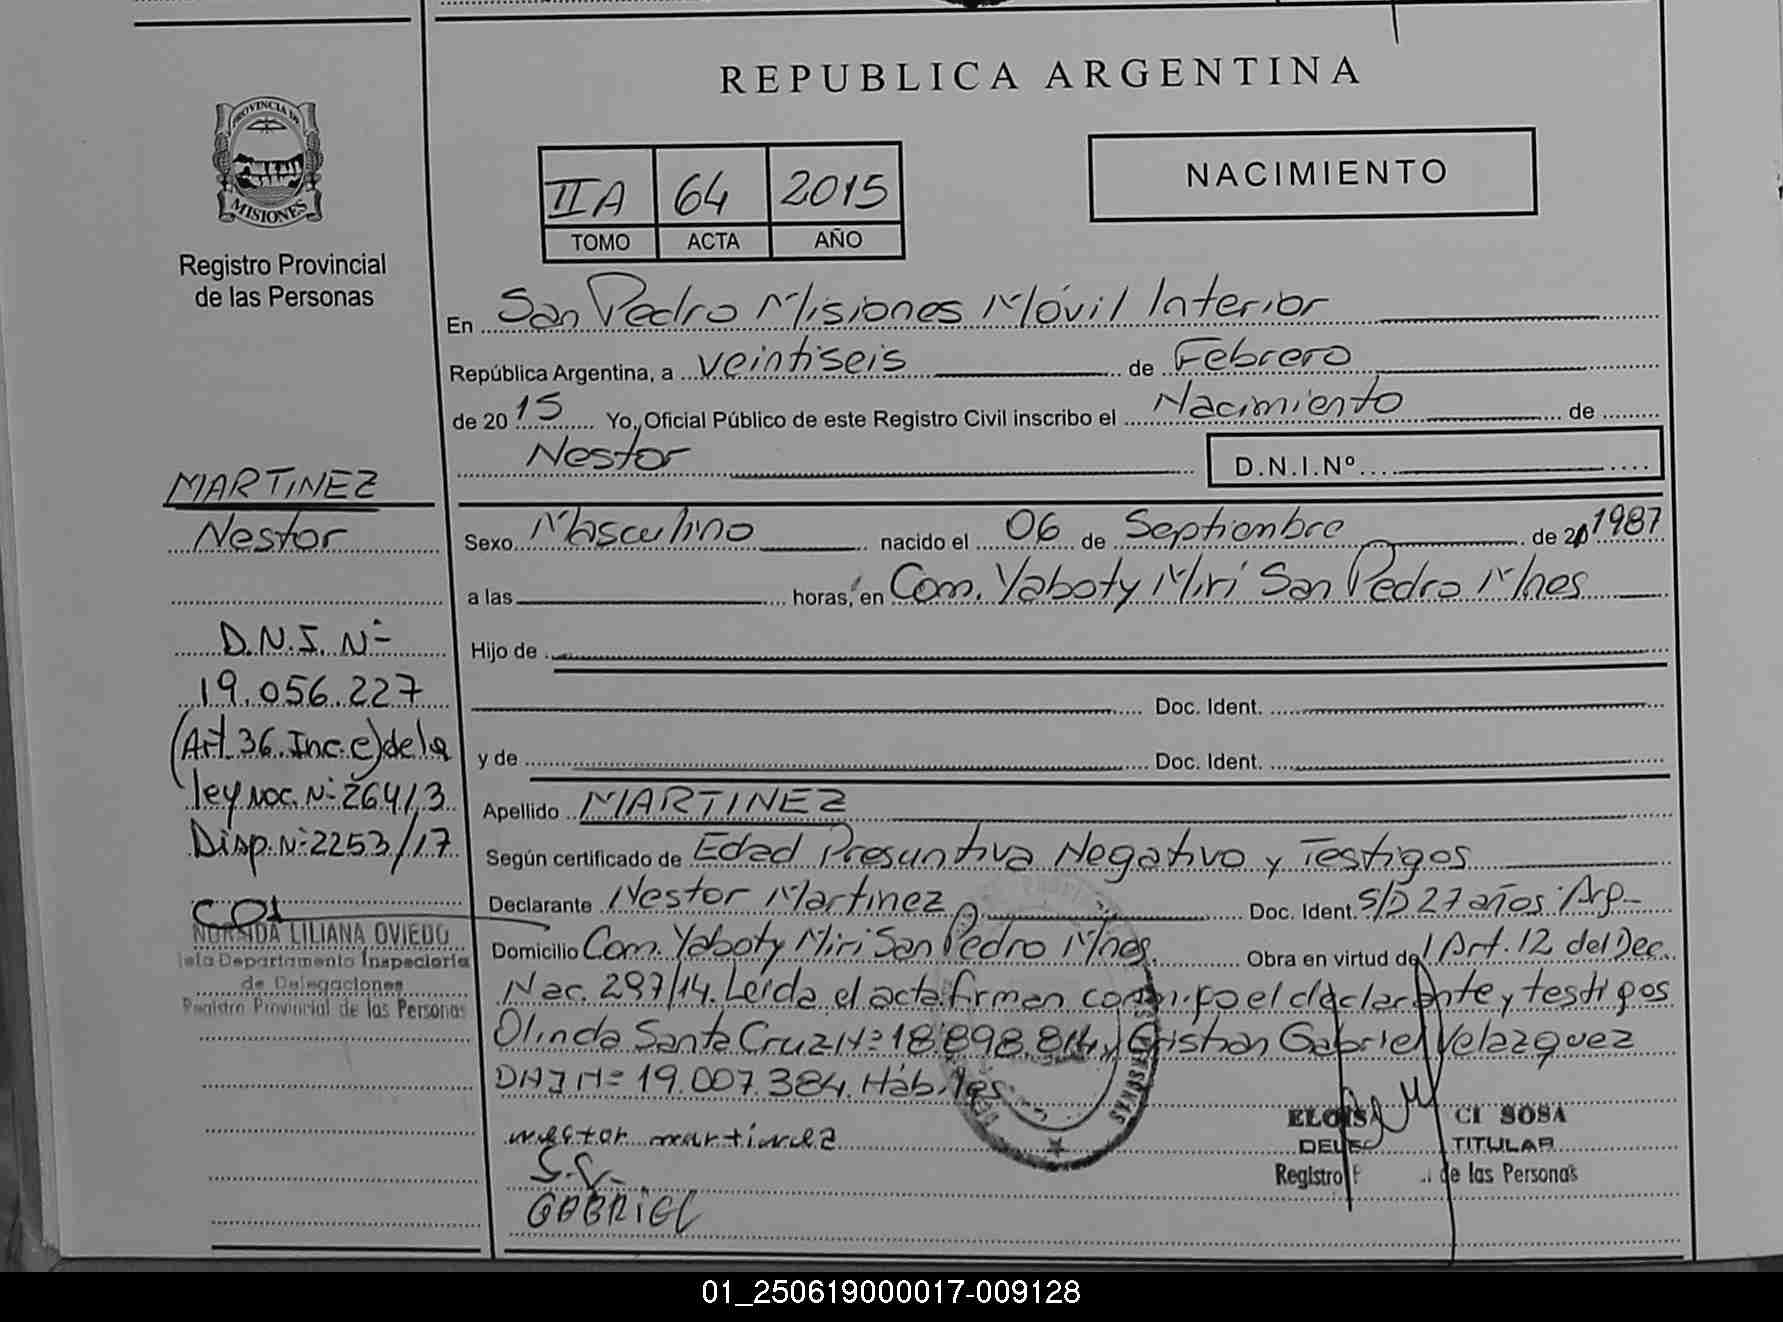 REPUBLICA ARGENTINA
PROVINCIA DE
MISIONES
Registro Provincial
de las Personas
IIA 64 2015
TOMO ACTA AÑO
NACIMIENTO
En San Pedro Misiones Móvil Interior
República Argentina, a veintiseis de Febrero
de 2015 Yo, Oficial Público de este Registro Civil inscribo el Nacimiento de
Nestor D.N.I.Nº
Sexo Masculino nacido el 06 de Septiembre de 20 1987
a las horas, en Com. Yaboty Miri San Pedro Mnes
Hijo de
Doc. Ident.
y de Doc. Ident.
Apellido MARTINEZ
Según certificado de Edad Presuntiva Negativo y Testigos
Declarante Nestor Martinez Doc. Ident. S/D 27 años Arg-
Domicilio Com. Yaboty Miri San Pedro Mnes Obra en virtud del Art. 12 del Dec.
Nac. 297/14. Leída el acta firman conmigo el declarante y testigos
Olinda Santa Cruz Nº 18.898.814 y Cristian Gabriel Velazquez
DNI Nº 19.007.384. Hábiles
nestor martinez
S.C.
GABRIEL
CI SOSA
TITULAR
Registro de las Personas
MARTINEZ
Nestor
D.N.I. Nº
19.056.227
(Art. 36. Inc. e) de la
ley NAC. Nº 26413
Disp. Nº 2253/17
LILIANA OVIEDO
Departamento Inspectoria
de Delegaciones
Registro Provincial de las Personas
01_250619000017-009128